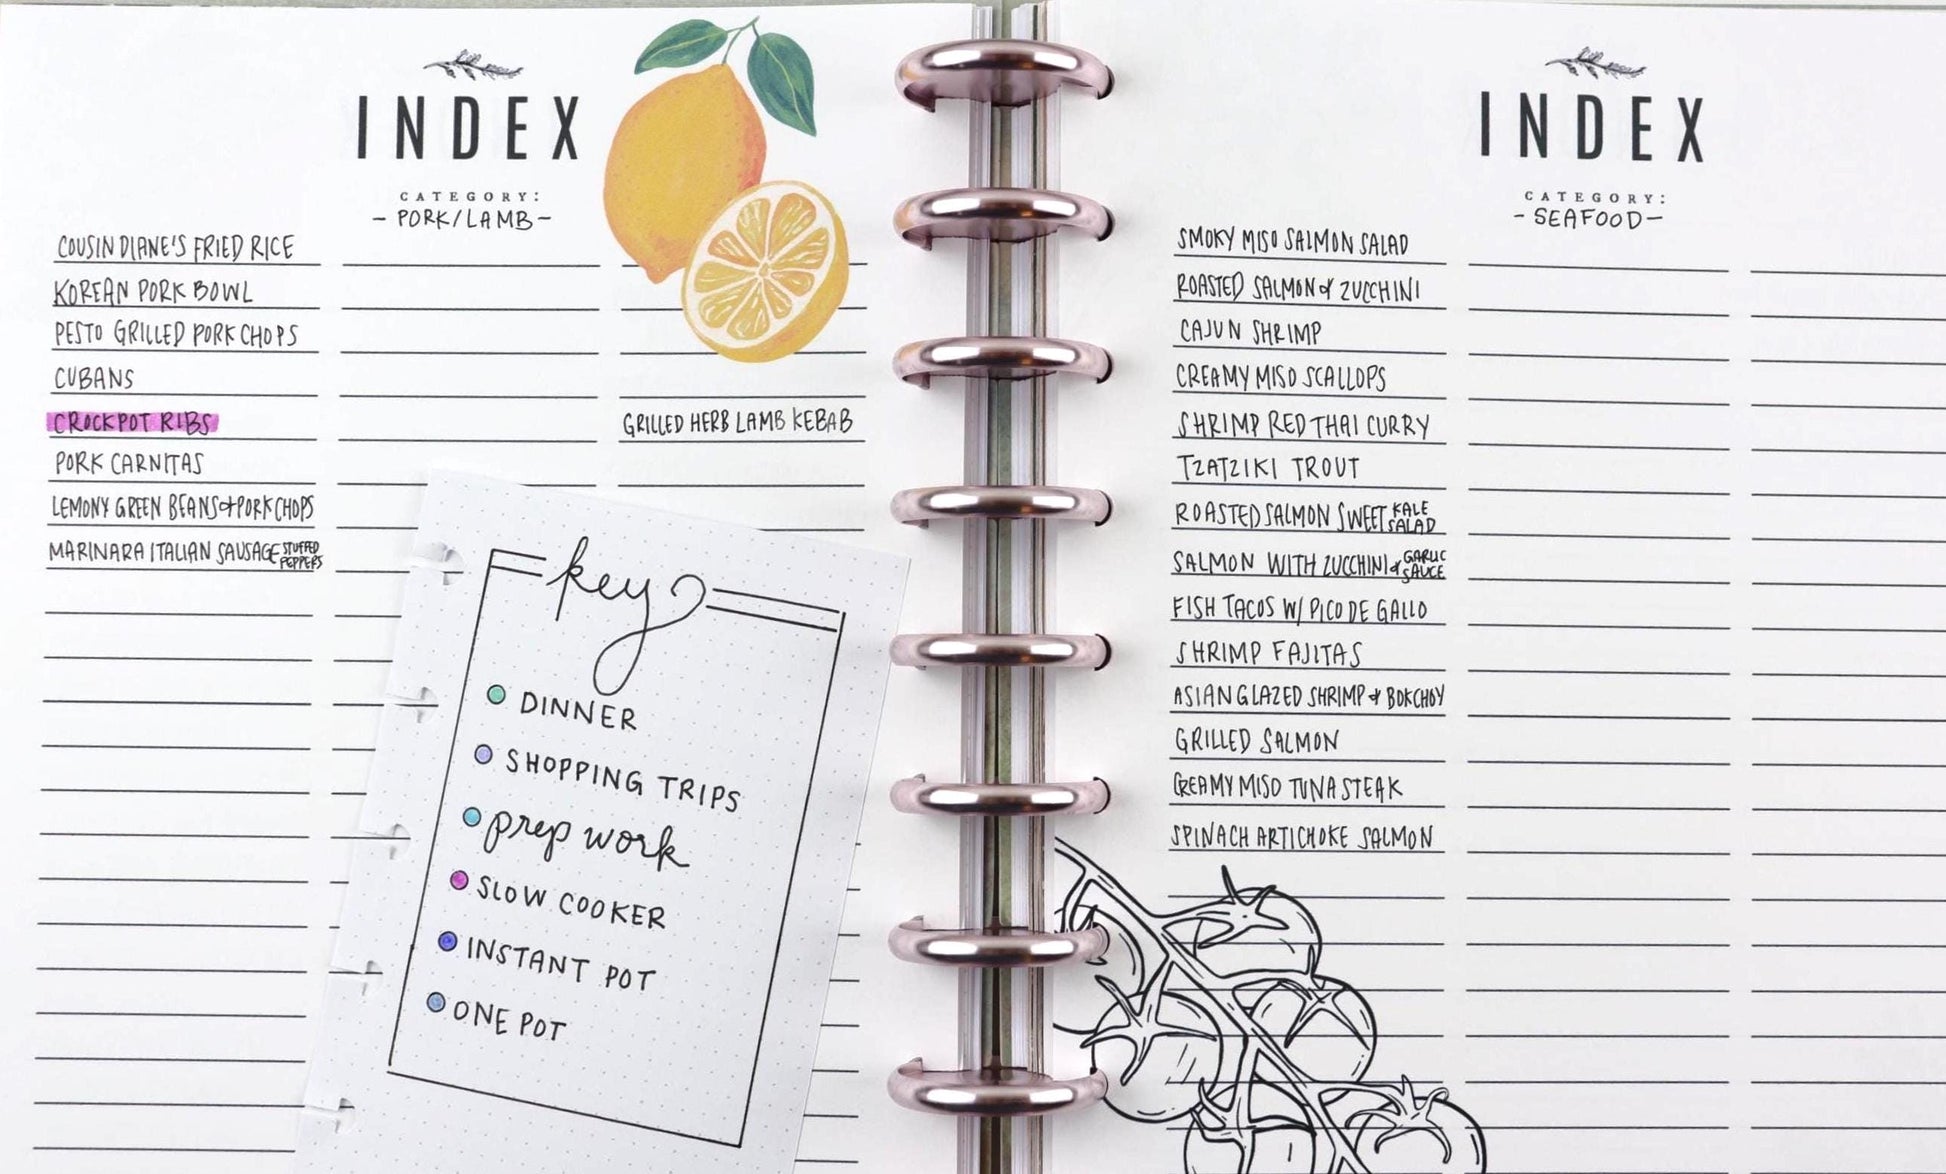 INDEX
CATEGORY:
- PORK/LAMB -
COUSIN DIANE'S FRIED RICE
KOREAN PORK BOWL
PESTO GRILLED PORK CHOPS
CUBANS
CROCKPOT RIBS
PORK CARNITAS
LEMONY GREEN BEANS & PORK CHOPS
MARINARA ITALIAN SAUSAGE STUFFED PEPPERS
GRILLED HERB LAMB KEBAB
key
DINNER
SHOPPING TRIPS
prep work
SLOW COOKER
INSTANT POT
ONE POT
INDEX
CATEGORY:
- SEAFOOD -
SMOKY MISO SALMON SALAD
ROASTED SALMON & ZUCCHINI
CAJUN SHRIMP
CREAMY MISO SCALLOPS
SHRIMP RED THAI CURRY
TZATZIKI TROUT
ROASTED SALMON SWEET KALE SALAD
SALMON WITH ZUCCHINI & GARLIC SAUCE
FISH TACOS W/ PICO DE GALLO
SHRIMP FAJITAS
ASIAN GLAZED SHRIMP & BOKCHOY
GRILLED SALMON
CREAMY MISO TUNA STEAK
SPINACH ARTICHOKE SALMON